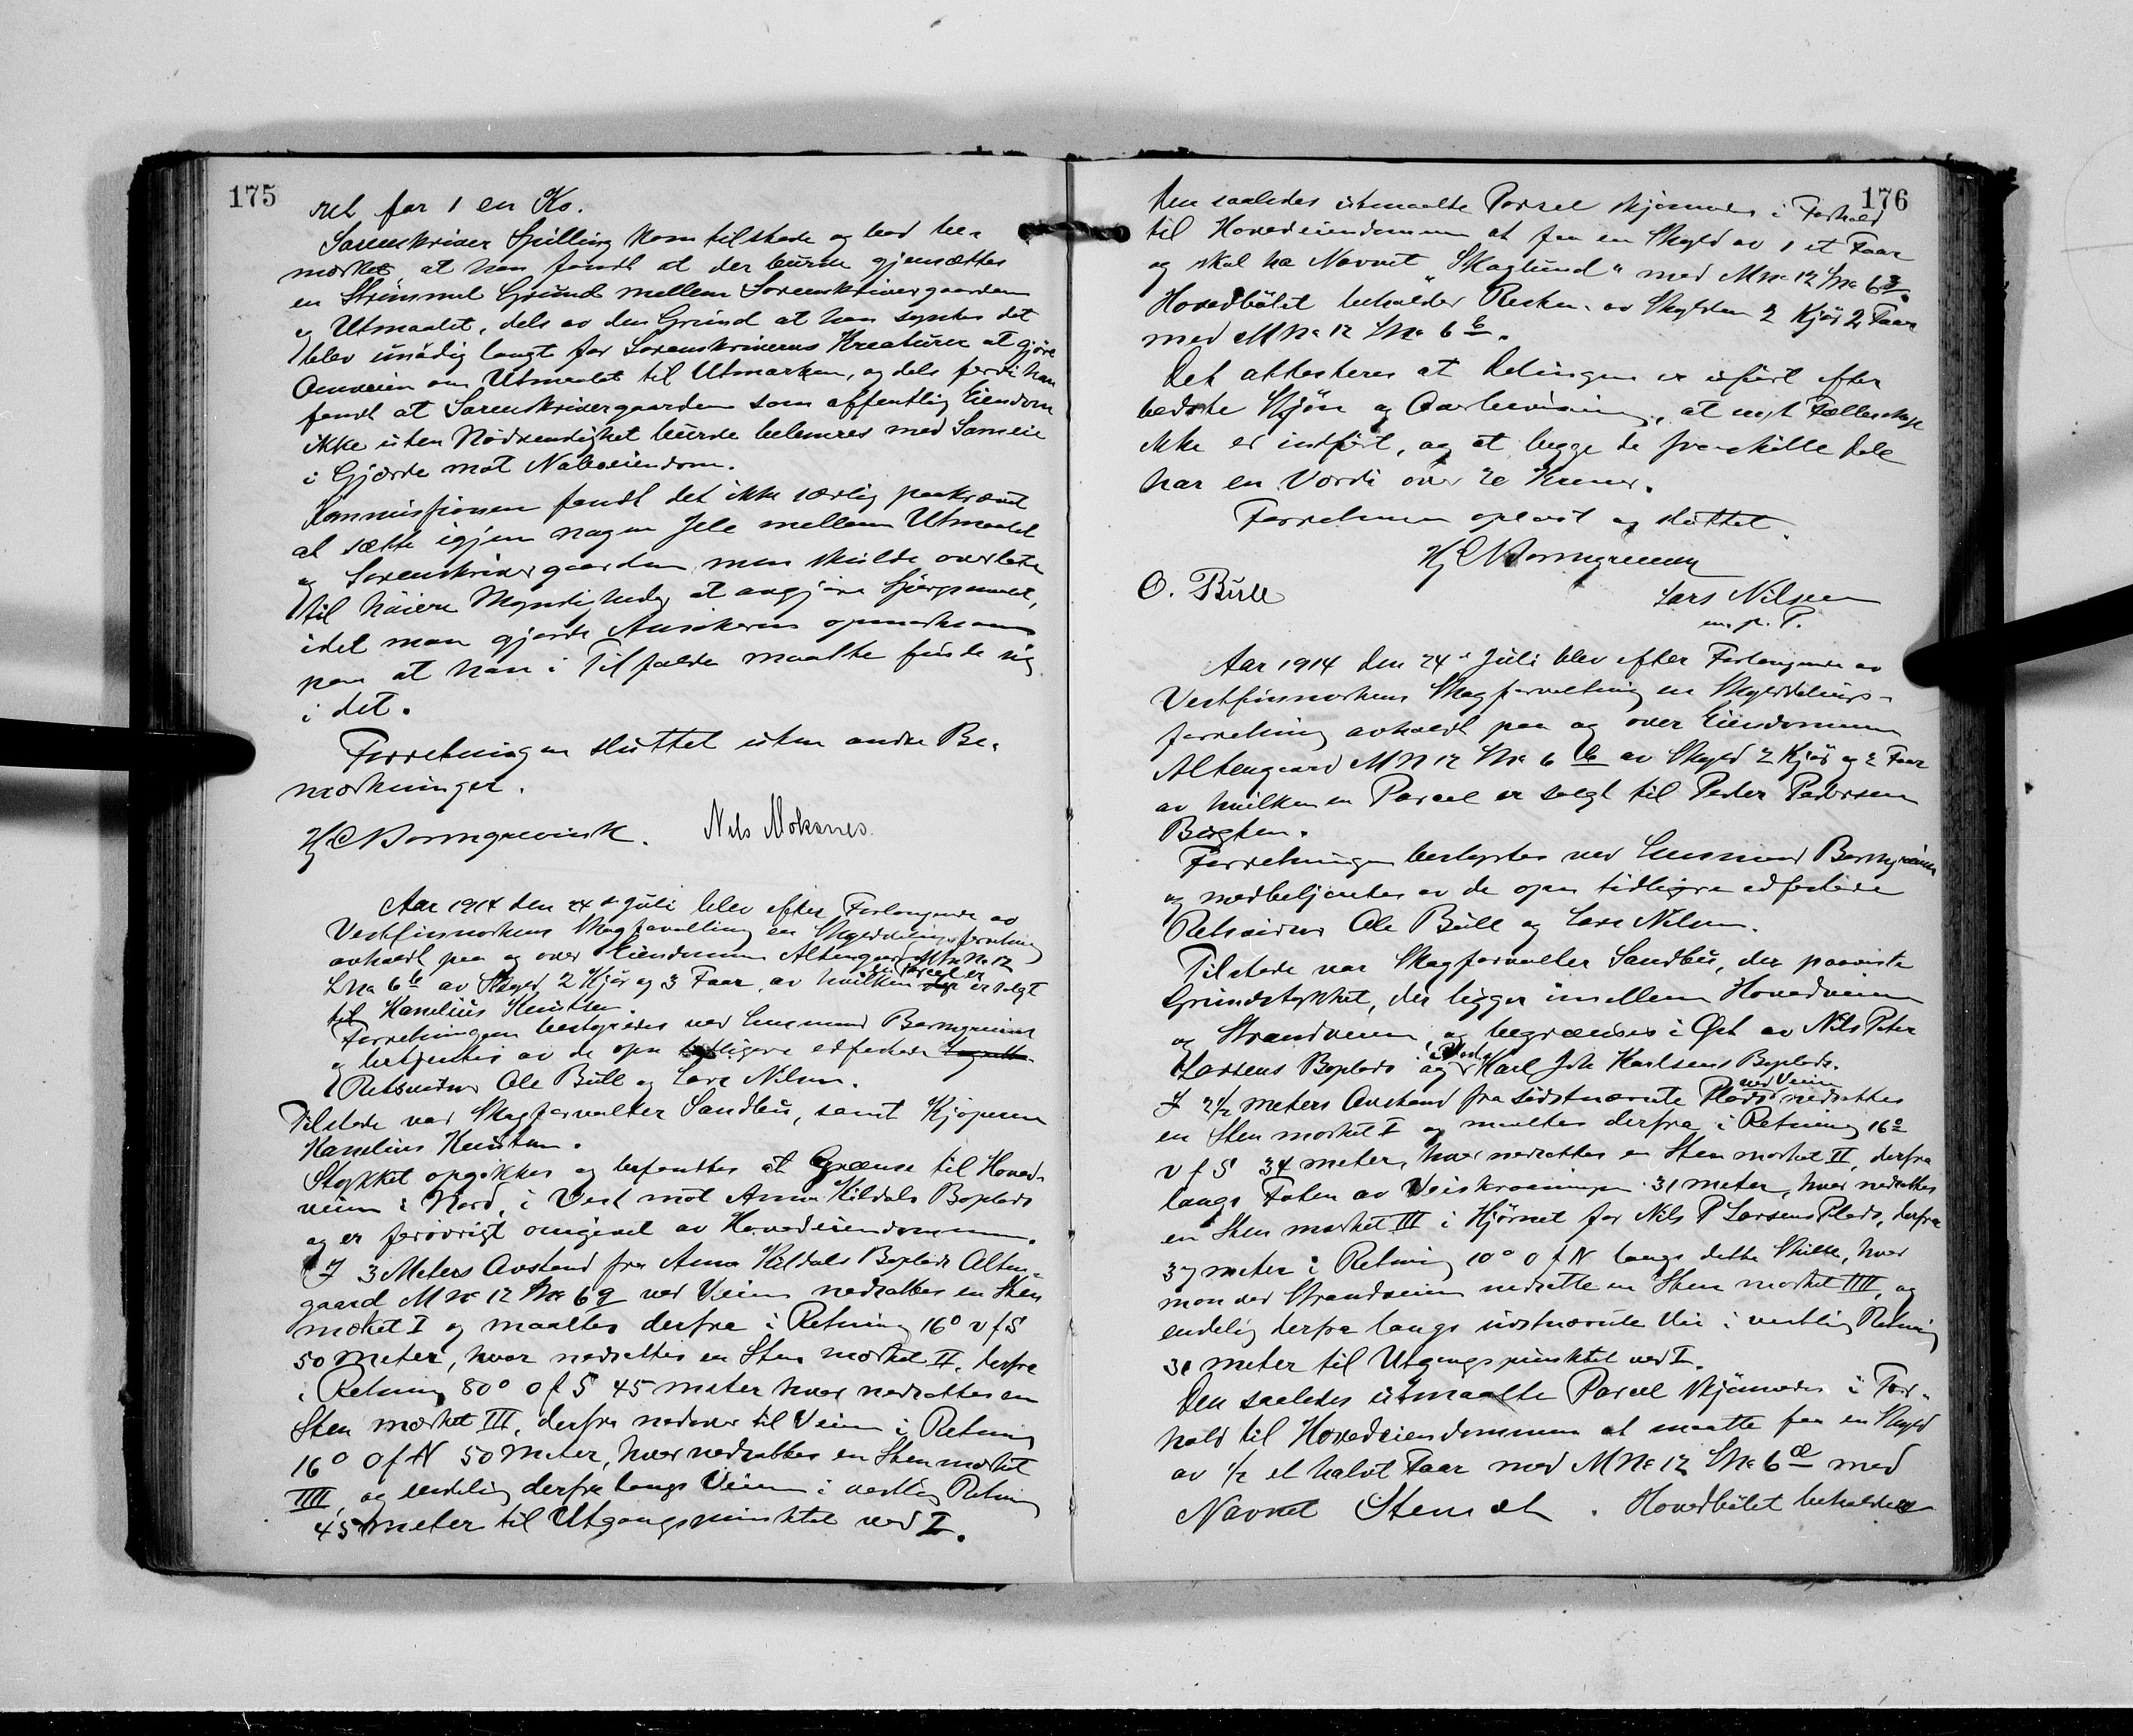 175
ret for 1 en Ko.
Sorenskriver Spilling kom tilstede og bad be-
mærket at han fandt at der burde gjensættes
en Strimmel Grund mellem Sorenskrivergaarden
og Utmaalet, dels av den Grund at han syntes det
blev unödig langt for Sorenskriverens Kreaturer at gjöre
Omveien om Utmaalet til Utmarken, og dels fordi han
fandt at Sorenskrivergaarden som offentlig Eiendom
ikke uten Nödvendighet burde belemres med Sameie
i Gjærde mot Naboeiendom.
Kommissionen fandt det ikke særlig paakrævet
at sætte igjen nogen mellem Utmaalet
og Sorenskrivergaarden, men skulde overlate
til höiere Myndigheder at avgjöre Spörgsmaalet,
idet man gjorde Ansökeren opmerksom
paa at han i Tilfælde maatte finde sig
i det.
Forretningen sluttet uten andre Be-
mærkninger.
Hj C Bormgrevink. Nils Moksnes.
Aar 1914 den 24de Juli blev efter Forlangende av
Vestfinmarkens Skogforvaltning en Skylddelingsforretning
avholdt paa og over Eiendommen Altengaard M Nr 12
L Nr 6b av Skyld 2 Kjör og 3 Faar, av hvilken en Parcel er solgt
til Kornelius Knutsen.
Forretningen bestyredes ved Lensmand Bormgrevink
og betjentes av de open tidligere edfæstede
Retsvidner Ole Bull og Lars Nilsen.
Tilstede var Skogforvalter Sandbu, samt Kjöperen
Kornelius Knutsen.
Stykket opgikkes og befandtes at Grænse til Hoved-
veien i Nord, i Vest mot Anna Kildals Boplads
og er forövrigt omgivet av Hovedeiendommen.
I 3 Meters Avstand fra Anna Kildals Boplads Alten-
gaard M Nr 12 L Nr 6g ved Veien nedsattes en Sten
merket I og maaltes derfra i Retning 16° v f S
50 Meter, hvor nedsattes en Sten mærket II, derfra
i Retning 80° O f S 45 meter hvor nedsattes en
Sten mærket III, derfra nedover til Veien i Retning
16° O f N 50 Meter, hvor nedsattes en Sten mærket
IIII, og endelig derfra langs Veien i vestlig Retning
45 Meter til Utgangspunktet ved I.
176
Den saaledes utmaalte Parcel skjönnedes i Forhold
til Hovedeiendommen at faa en Skyld av 1 et Faar
og skal ha Navnet "Skoglund" med M Nr 12 L Nr 63.
Hovedbölet beholder Resten av Skylden 2 Kjör 2 Faar
med M Nr 12 L Nr 6b.
Det attesteres at Delingen er utfört efter
bedste Skjön og Overbevisning, at nyt Fællesskap
ikke er indfört, og at begge de fraskilte Dele
har en Værdi over 20 Kroner.
Forretningen oplæst og sluttet.
Hj C Bormgrevink
O. Bull Lars Nilsen
m. p. P.
Aar 1914 den 24de Juli blev efter Forlangende av
Vestfinmarkens Skogforvaltning en Skylddelings-
forretning avholdt paa og over Eiendommen
Altengaard M N 12 L Nr 6b av Skyld 2 Kjör og 2 Faar
av hvilken en Parcel er solgt til Peder Pedersen
Forretningen bestyrtes ved Lensmand Bormgrevink
og medbetjentes av de open tidligere edfæstede
Retsvidner Ole Bull og Lars Nilsen.
Tilstede var Skogforvalter Sandbu, der paaviste
Grundstykket, der ligger imellem Hovedveien
og Strandveien, og begrænses i Öst av Nils Peter
Larsens Boplads og i Vest Karl Joh Karlsens Boplads.
I 2 1/2 meters Avstand fra sidstnævnte Plads ved Veien nedsattes
en Sten mærket I og maaltes derfra i Retning 16°
v f S 34 meter, hvor nedsattes en Sten mærket II, derfra
langs Foten av Veiskraaningen 31 meter, hvor nedsattes
en Sten mærket III i Hjörnet for Nils P Larsens Plads, derfra
37 meter i Retning 10° O f N langs dette Skille, hvor
man ved Strandveien nedsatte en Sten mærket IIII, og
endelig derfra langs sidstnævnte Vei i vestlig Retning
31 meter til Utgangspunktet ved I.
Den saaledes utmaalte Parcel skjönnedes i For-
hold til Hovedeiendommen at maatte faa en Skyld
av 1/2 et halvt Faar med M Nr 12 L Nr 6æ med
Navnet . Hovedbölet beholder